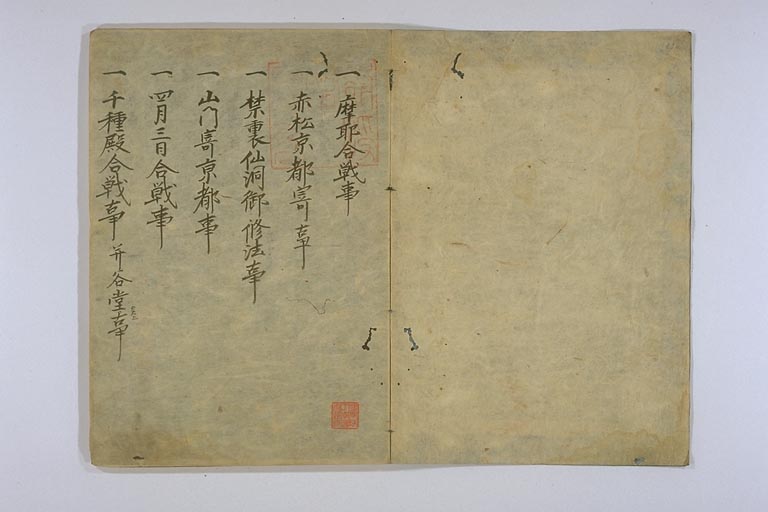 一 摩耶合戦事
一 赤松京都寄事
一 禁裏仙洞御修法事
一 山門寄京都事
一 四月三日合戦事
一 千種殿合戦事 并谷堂事